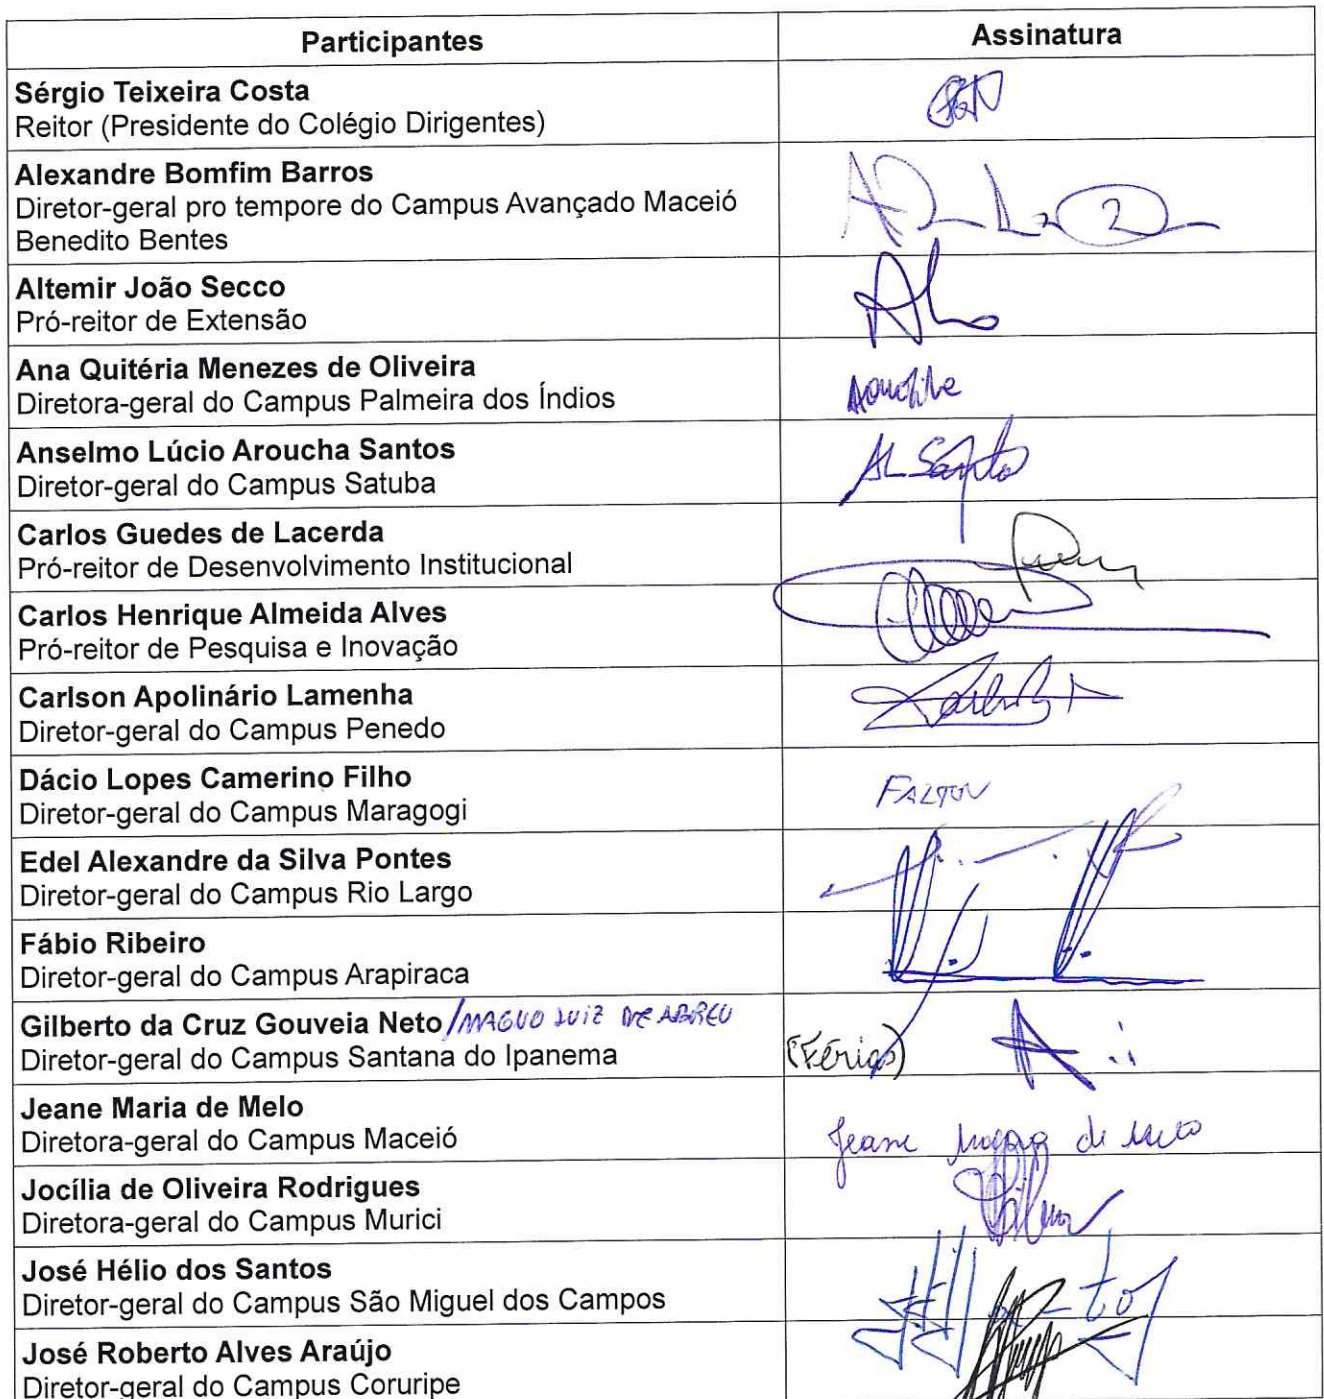 Participantes Assinatura
Sérgio Teixeira Costa
Reitor (Presidente do Colégio Dirigentes)
Alexandre Bomfim Barros
Diretor-geral pro tempore do Campus Avançado Maceió
Benedito Bentes
Altemir João Secco
Pró-reitor de Extensão
Ana Quitéria Menezes de Oliveira
Diretora-geral do Campus Palmeira dos Índios
Anselmo Lúcio Aroucha Santos
Diretor-geral do Campus Satuba
AL Santos
Carlos Guedes de Lacerda
Pró-reitor de Desenvolvimento Institucional
Carlos Henrique Almeida Alves
Pró-reitor de Pesquisa e Inovação
Carlson Apolinário Lamenha
Diretor-geral do Campus Penedo
Dácio Lopes Camerino Filho
Diretor-geral do Campus Maragogi
FALTOU
Edel Alexandre da Silva Pontes
Diretor-geral do Campus Rio Largo
Fábio Ribeiro
Diretor-geral do Campus Arapiraca
Gilberto da Cruz Gouveia Neto / LUIZ DE ABREU
Diretor-geral do Campus Santana do Ipanema (Férias)
Jeane Maria de Melo
Diretora-geral do Campus Maceió
Jeane Maria de Melo
Jocília de Oliveira Rodrigues
Diretora-geral do Campus Murici
José Hélio dos Santos
Diretor-geral do Campus São Miguel dos Campos
José Roberto Alves Araújo
Diretor-geral do Campus Coruripe